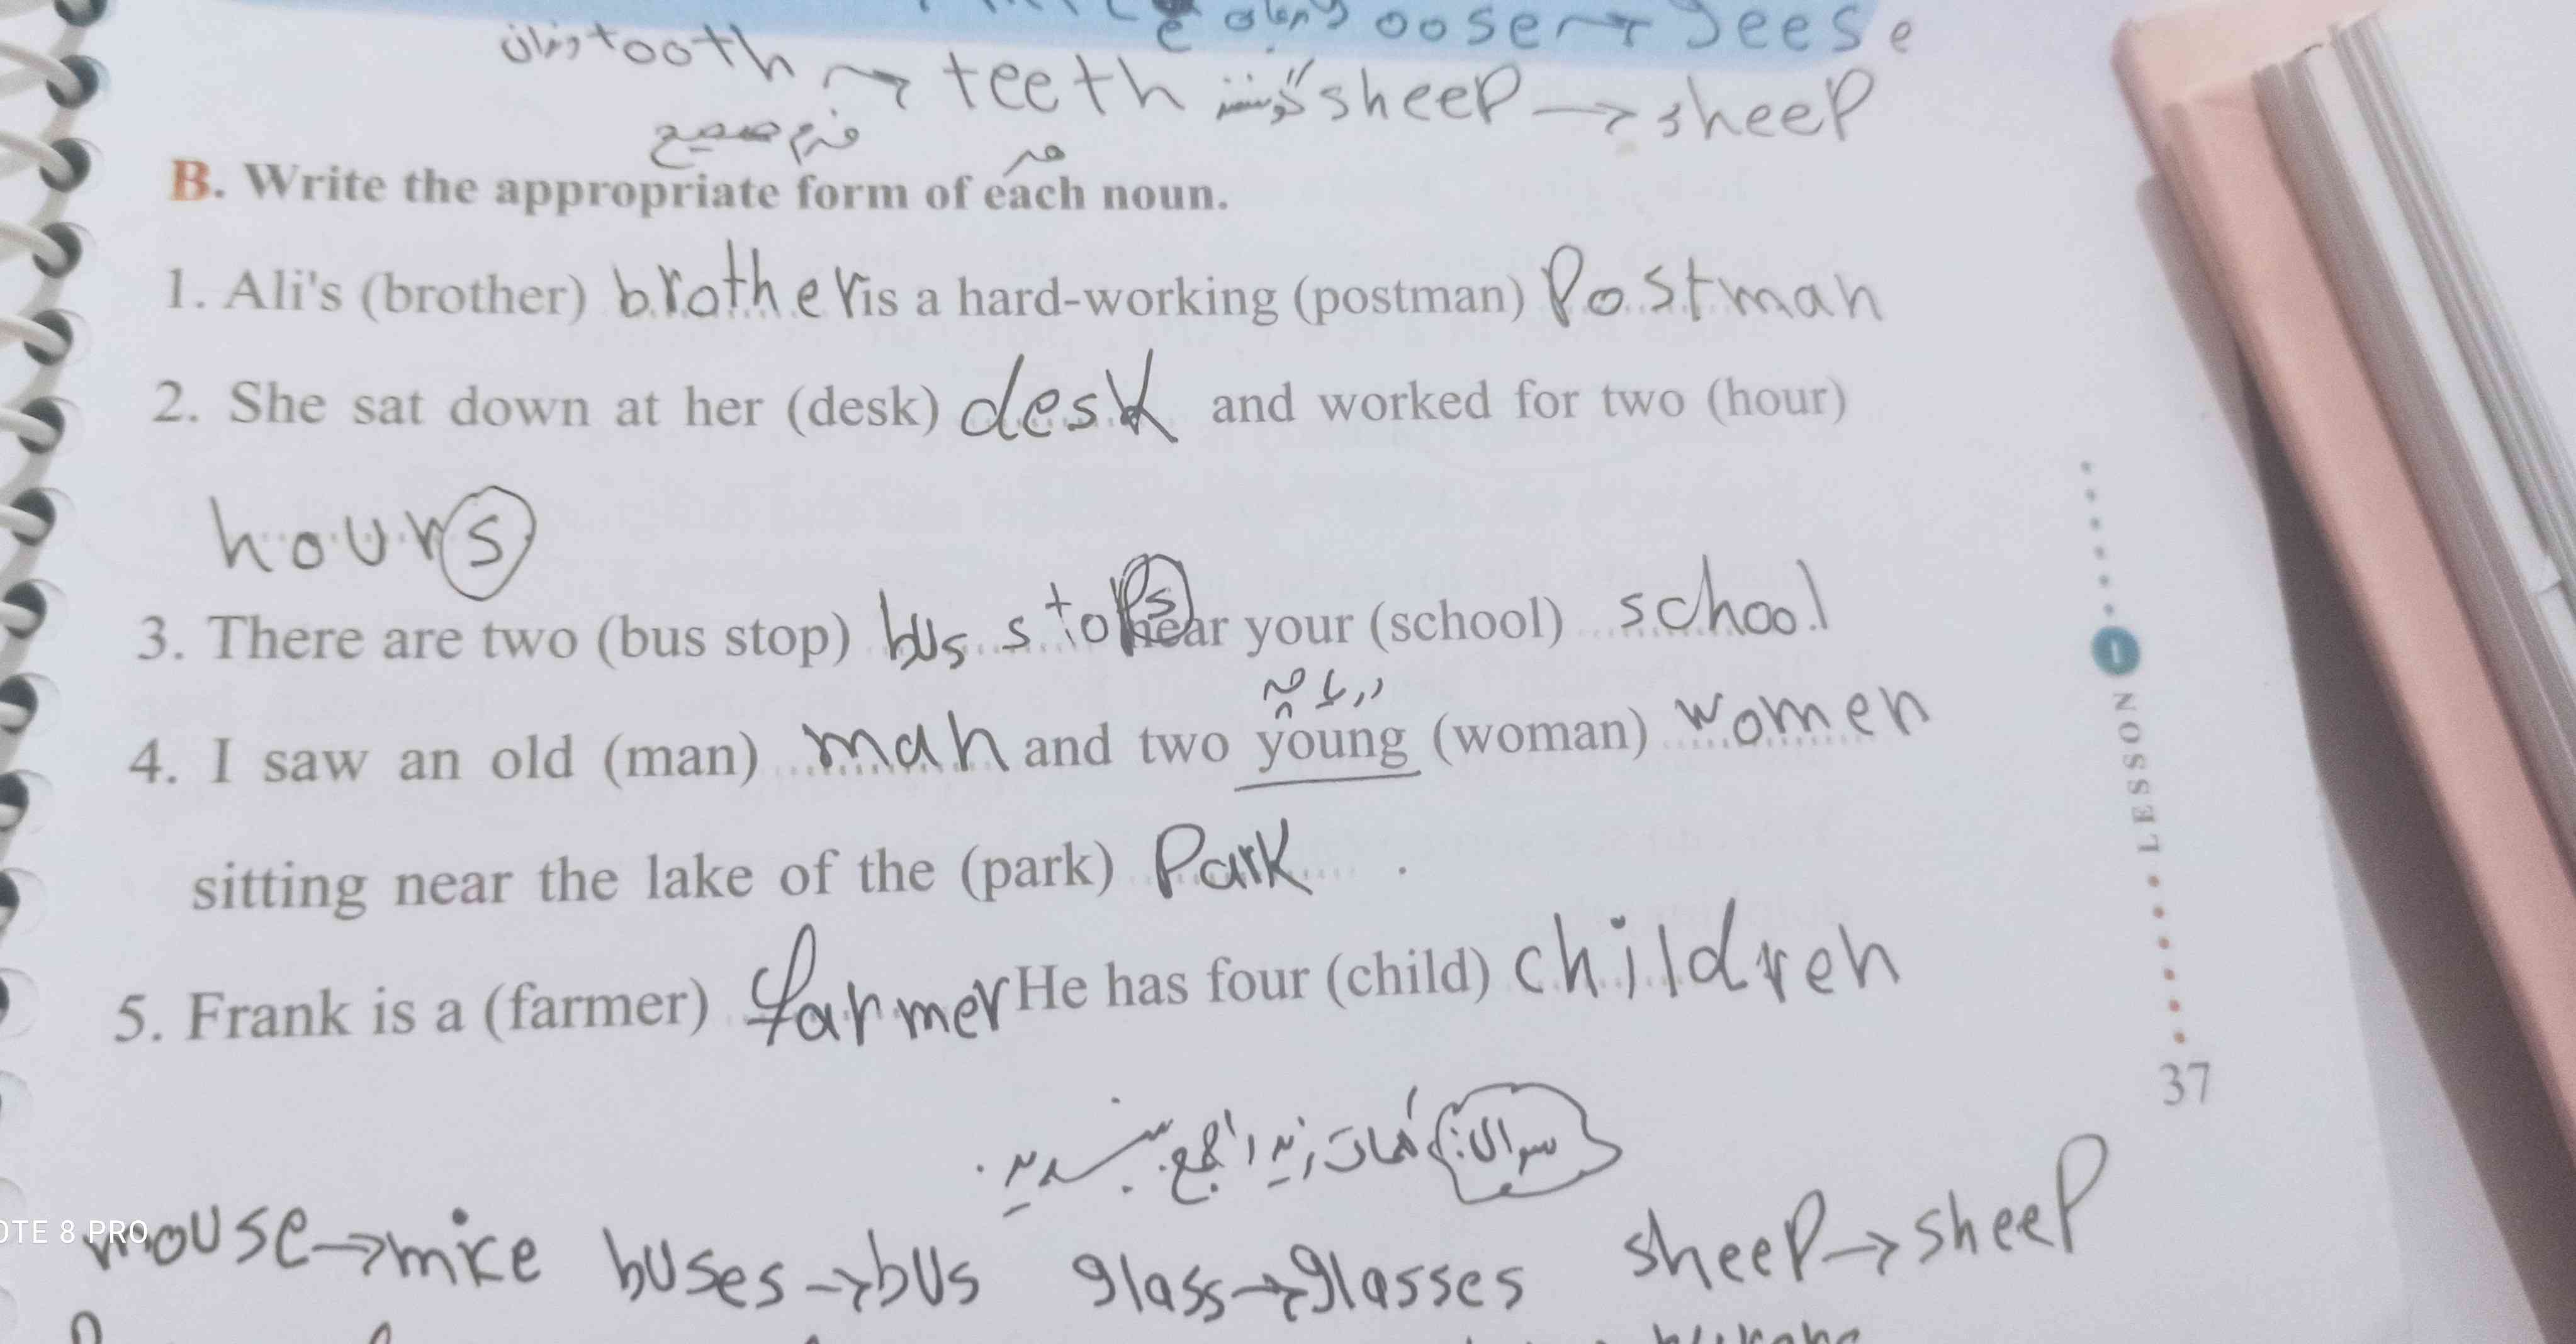 oose → geese
دندان tooth → teeth گوسفند sheep → sheep
فرم صحیح هر
B. Write the appropriate form of each noun.
1. Ali's (brother) brother is a hard-working (postman) Postman
2. She sat down at her (desk) desk and worked for two (hour)
hours
3. There are two (bus stop) bus stops near your (school) school
4. I saw an old (man) man and two young (woman) women
sitting near the lake of the (park) Park .
5. Frank is a (farmer) farmer He has four (child) children
سوال: کلمات زیر را جمع ببندید.
mouse → mice buses → bus glass → glasses sheep → sheep
LESSON 1
37
OTE 8 PRO